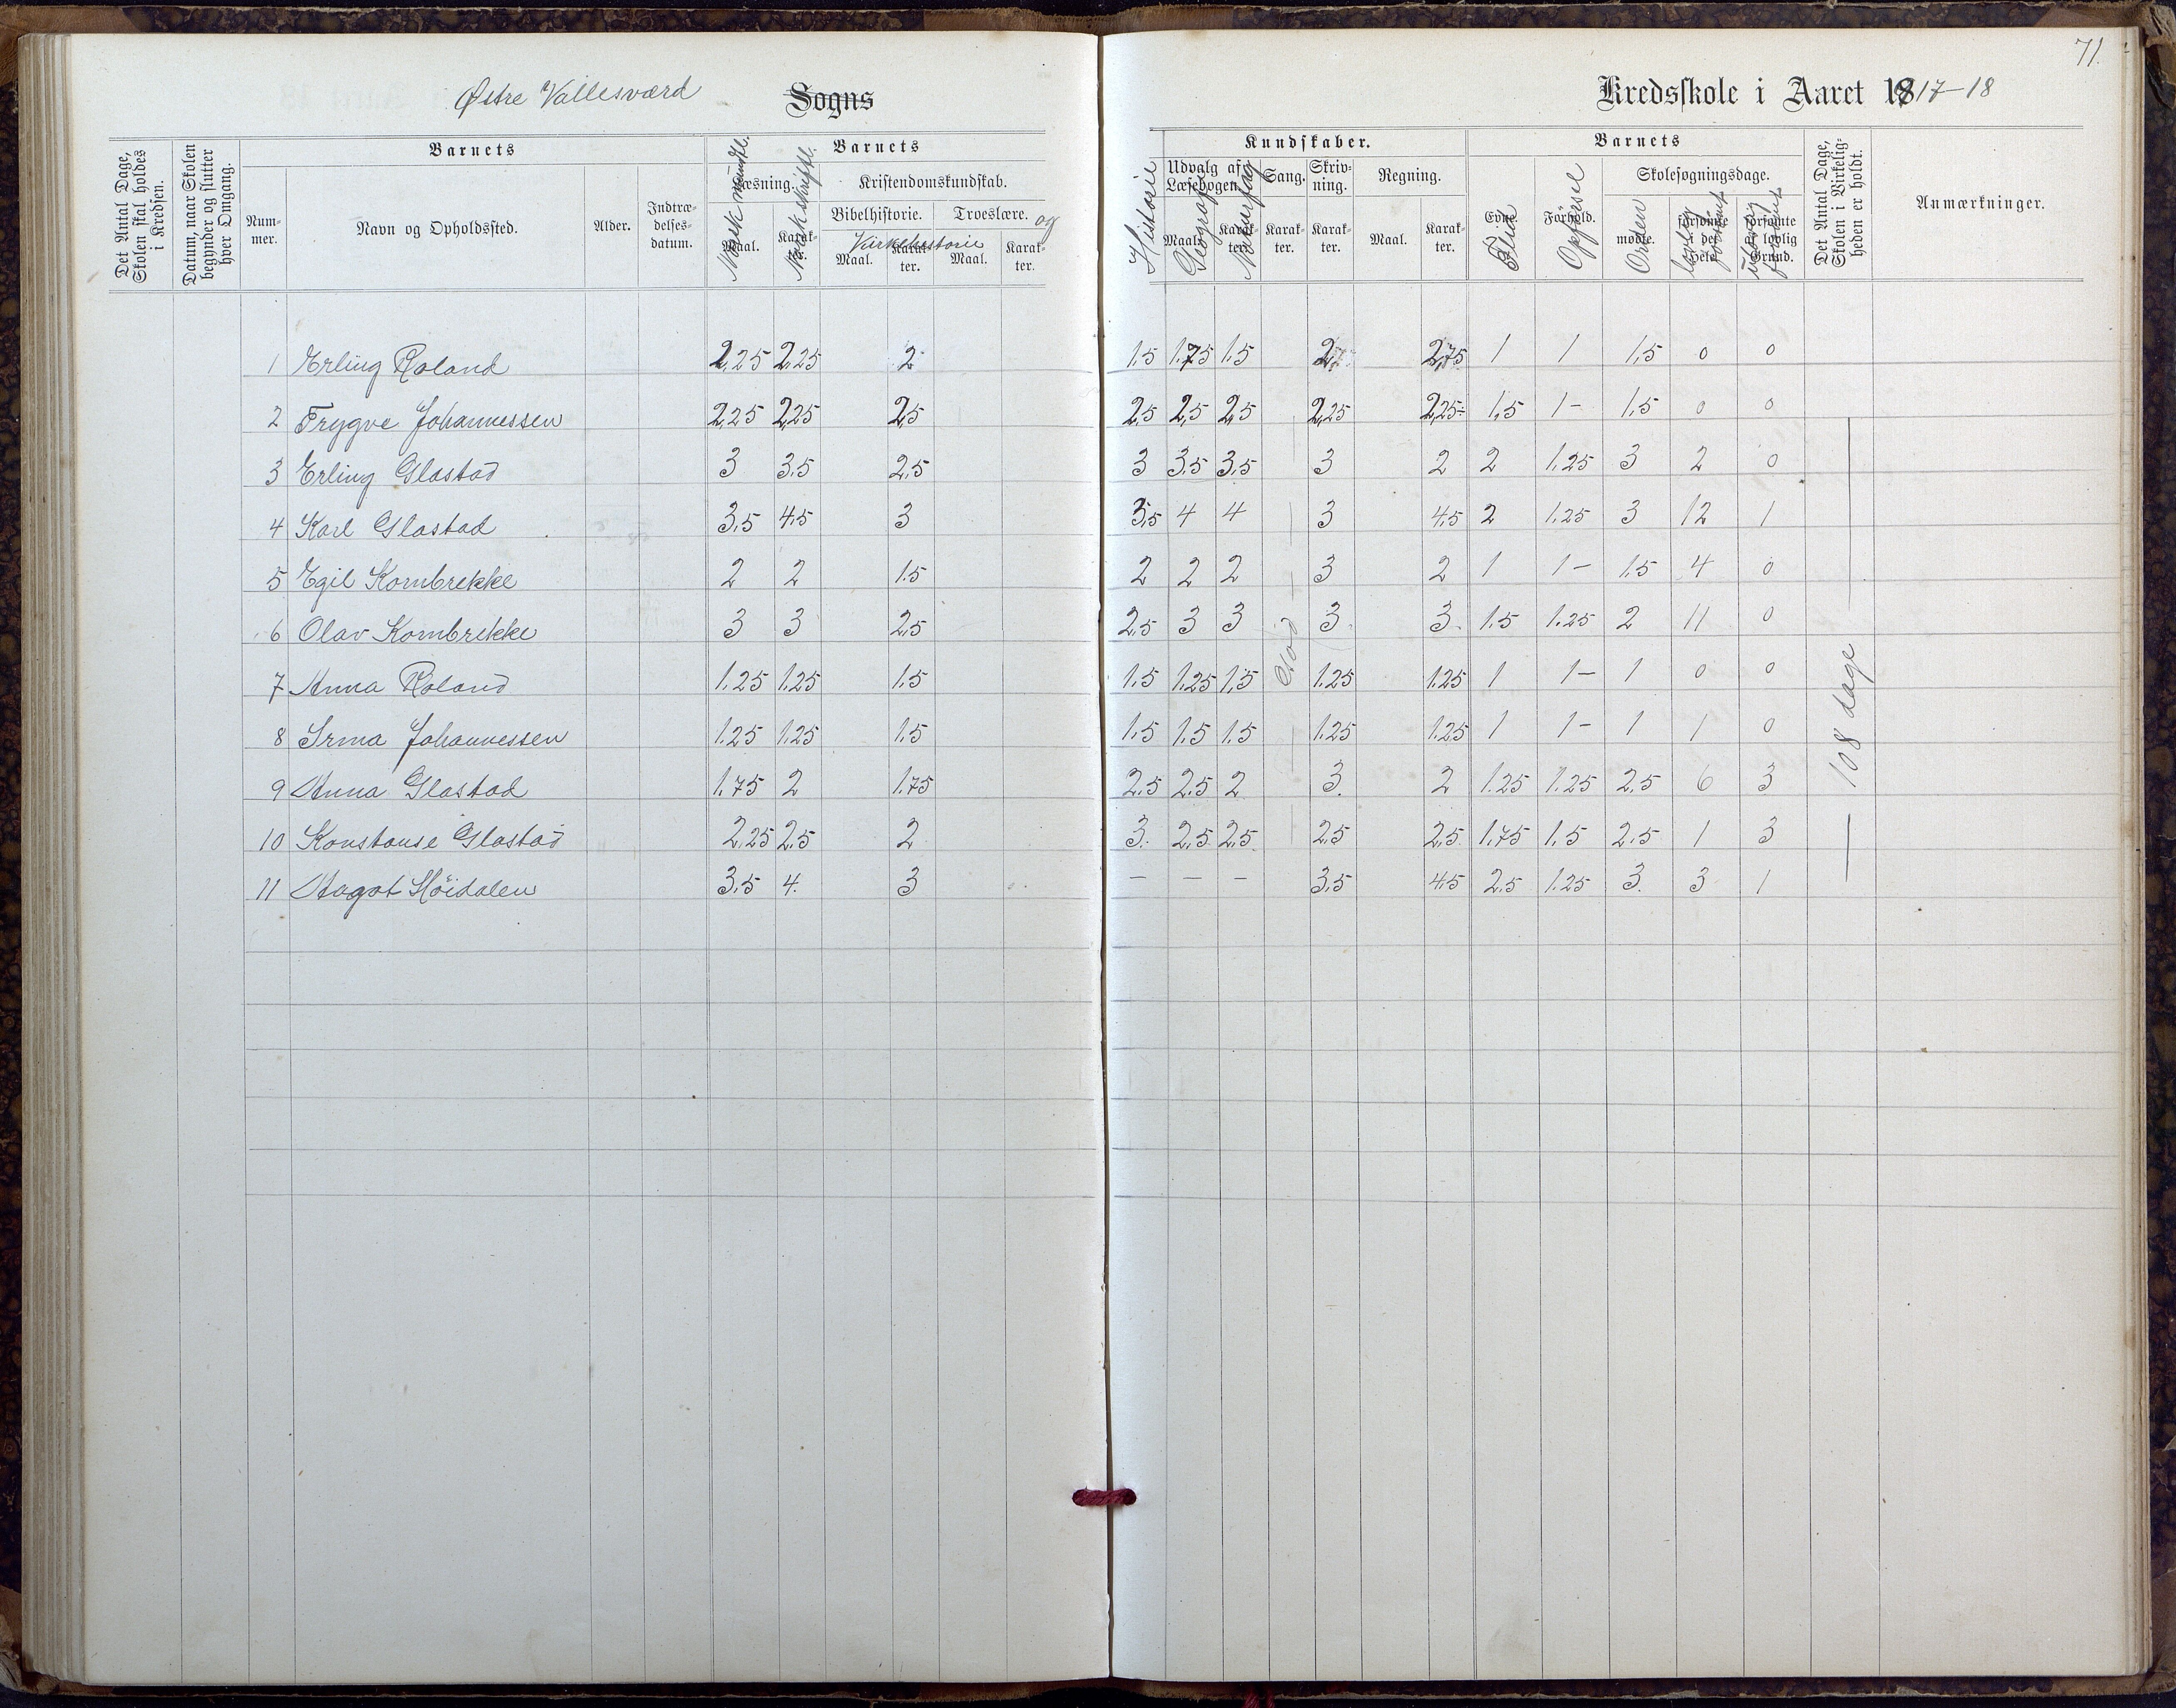 71.
Østre Vallesværd Sogns Kredsskole i Aaret 1917-18
Det Antal Dage, Skolen skal holdes i Kredsen.
Datum, naar Skolen begynder og slutter hver Omgang.
Barnets
Num-mer.
Navn og Opholdssted.
Alder.
Indtræ-delses-datum.
Barnets
Læsning.
Maal. Karak-ter.
Norsk mundtl.
Norsk skriftl.
Kristendomskundskab.
Bibelhistorie. Troeslære.
og Kirkehistorie
Maal. Karak-ter. Maal. Karak-ter.
Kundskaber.
Historie
Udvalg af Læsebogen.
Maal. Karak-ter.
Geografi
Naturfag
Sang. Karak-ter.
Skriv-ning. Karak-ter.
Regning.
Maal. Karak-ter.
Barnets
Evne. Flid
Forhold. Opførsel
Skolesøgningsdage.
mødte. Orden
forsømte det Hele
forsømte af lovlig Grund.
Det Antal Dage, Skolen i Virkelig-heden er holdt.
Anmærkninger.
1 Erling Roland 2,25 2,25 2 1.5 1.75 1.5 2,75 1 1 1,5 0 0
2 Trygve Johannessen 2,25 2,25 2,5 2,5 2,5 2,5 2,25 2,25- 1,5 1- 1,5 0 0
3 Erling Glastad 3 3.5 2,5 3 3.5 3,5 3 2 2 1.25 3 2 0
4 Karl Glastad 3,5 4.5 3 3,5 4 4 3 4,5 2 1.25 3 12 1
5 Egil Kornbrekke 2 2 1.5 2 2 2 3 2 1 1- 1.5 4 0
6 Olav Kornbrekke 3 3 2,5 2,5 3 3 3. 3. 1.5 1.25 2 11 0
7 Anna Roland 1.25 1.25 1.5 1.5 1.25 1,5 1.25 1.25 1 1- 1 0 0
8 Irma Johannessen 1.25 1.25 1.5 1.5 1.5 1.5 1.25 1.25 1 1- 1 1 0
9 Anna Glastad 1.75 2 1.75 2.5 2.5 2 3. 2 1.25 1.25 2,5 6 3
10 Konstanse Glastad 2,25 2.5 2 3. 2,5 2,5 2,5 2,5 1.75 1.5 2.5 1 3
11 Aagot Höidalen 3.5 4. 3 – – – 3,5 4.5 2.5 1.25 3. 3 1
God
— 108 dage —